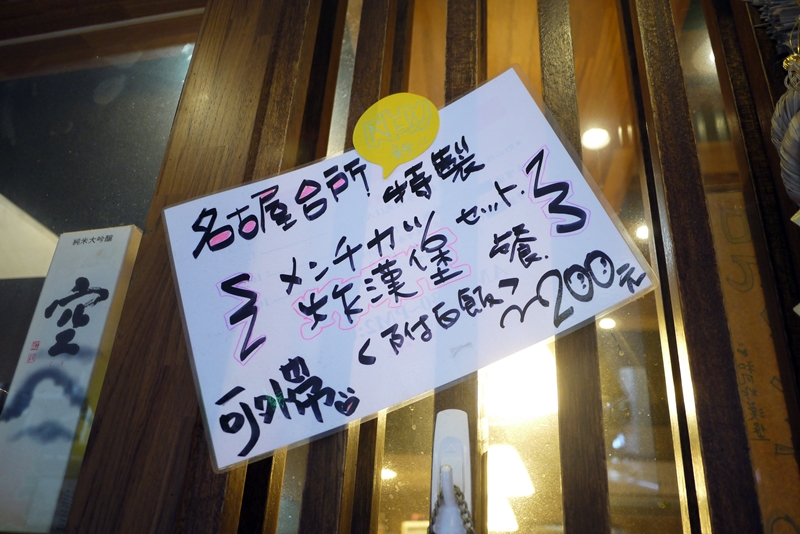 名古屋台所 特製
メンチカツ セット
炸漢堡 套餐
<附白飯>
~200元
可外帶
純米大吟醸
空